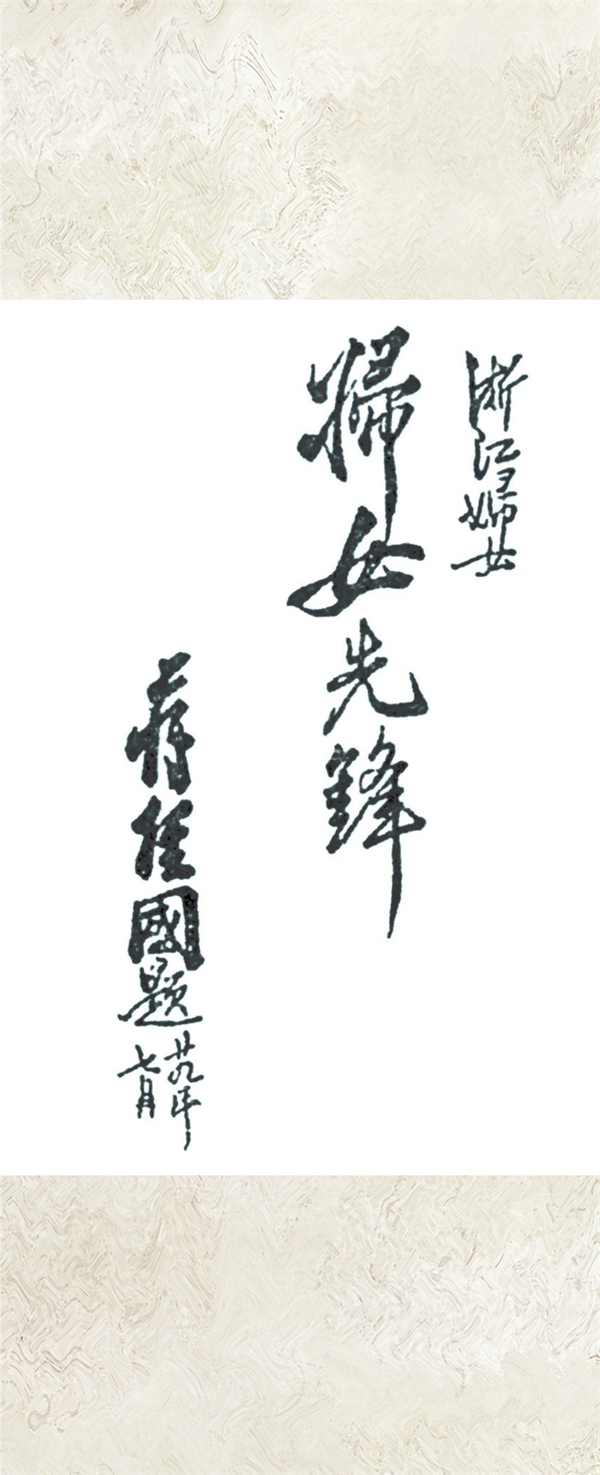 浙江婦女
婦女先鋒
蔣經國題
廿九年
七月